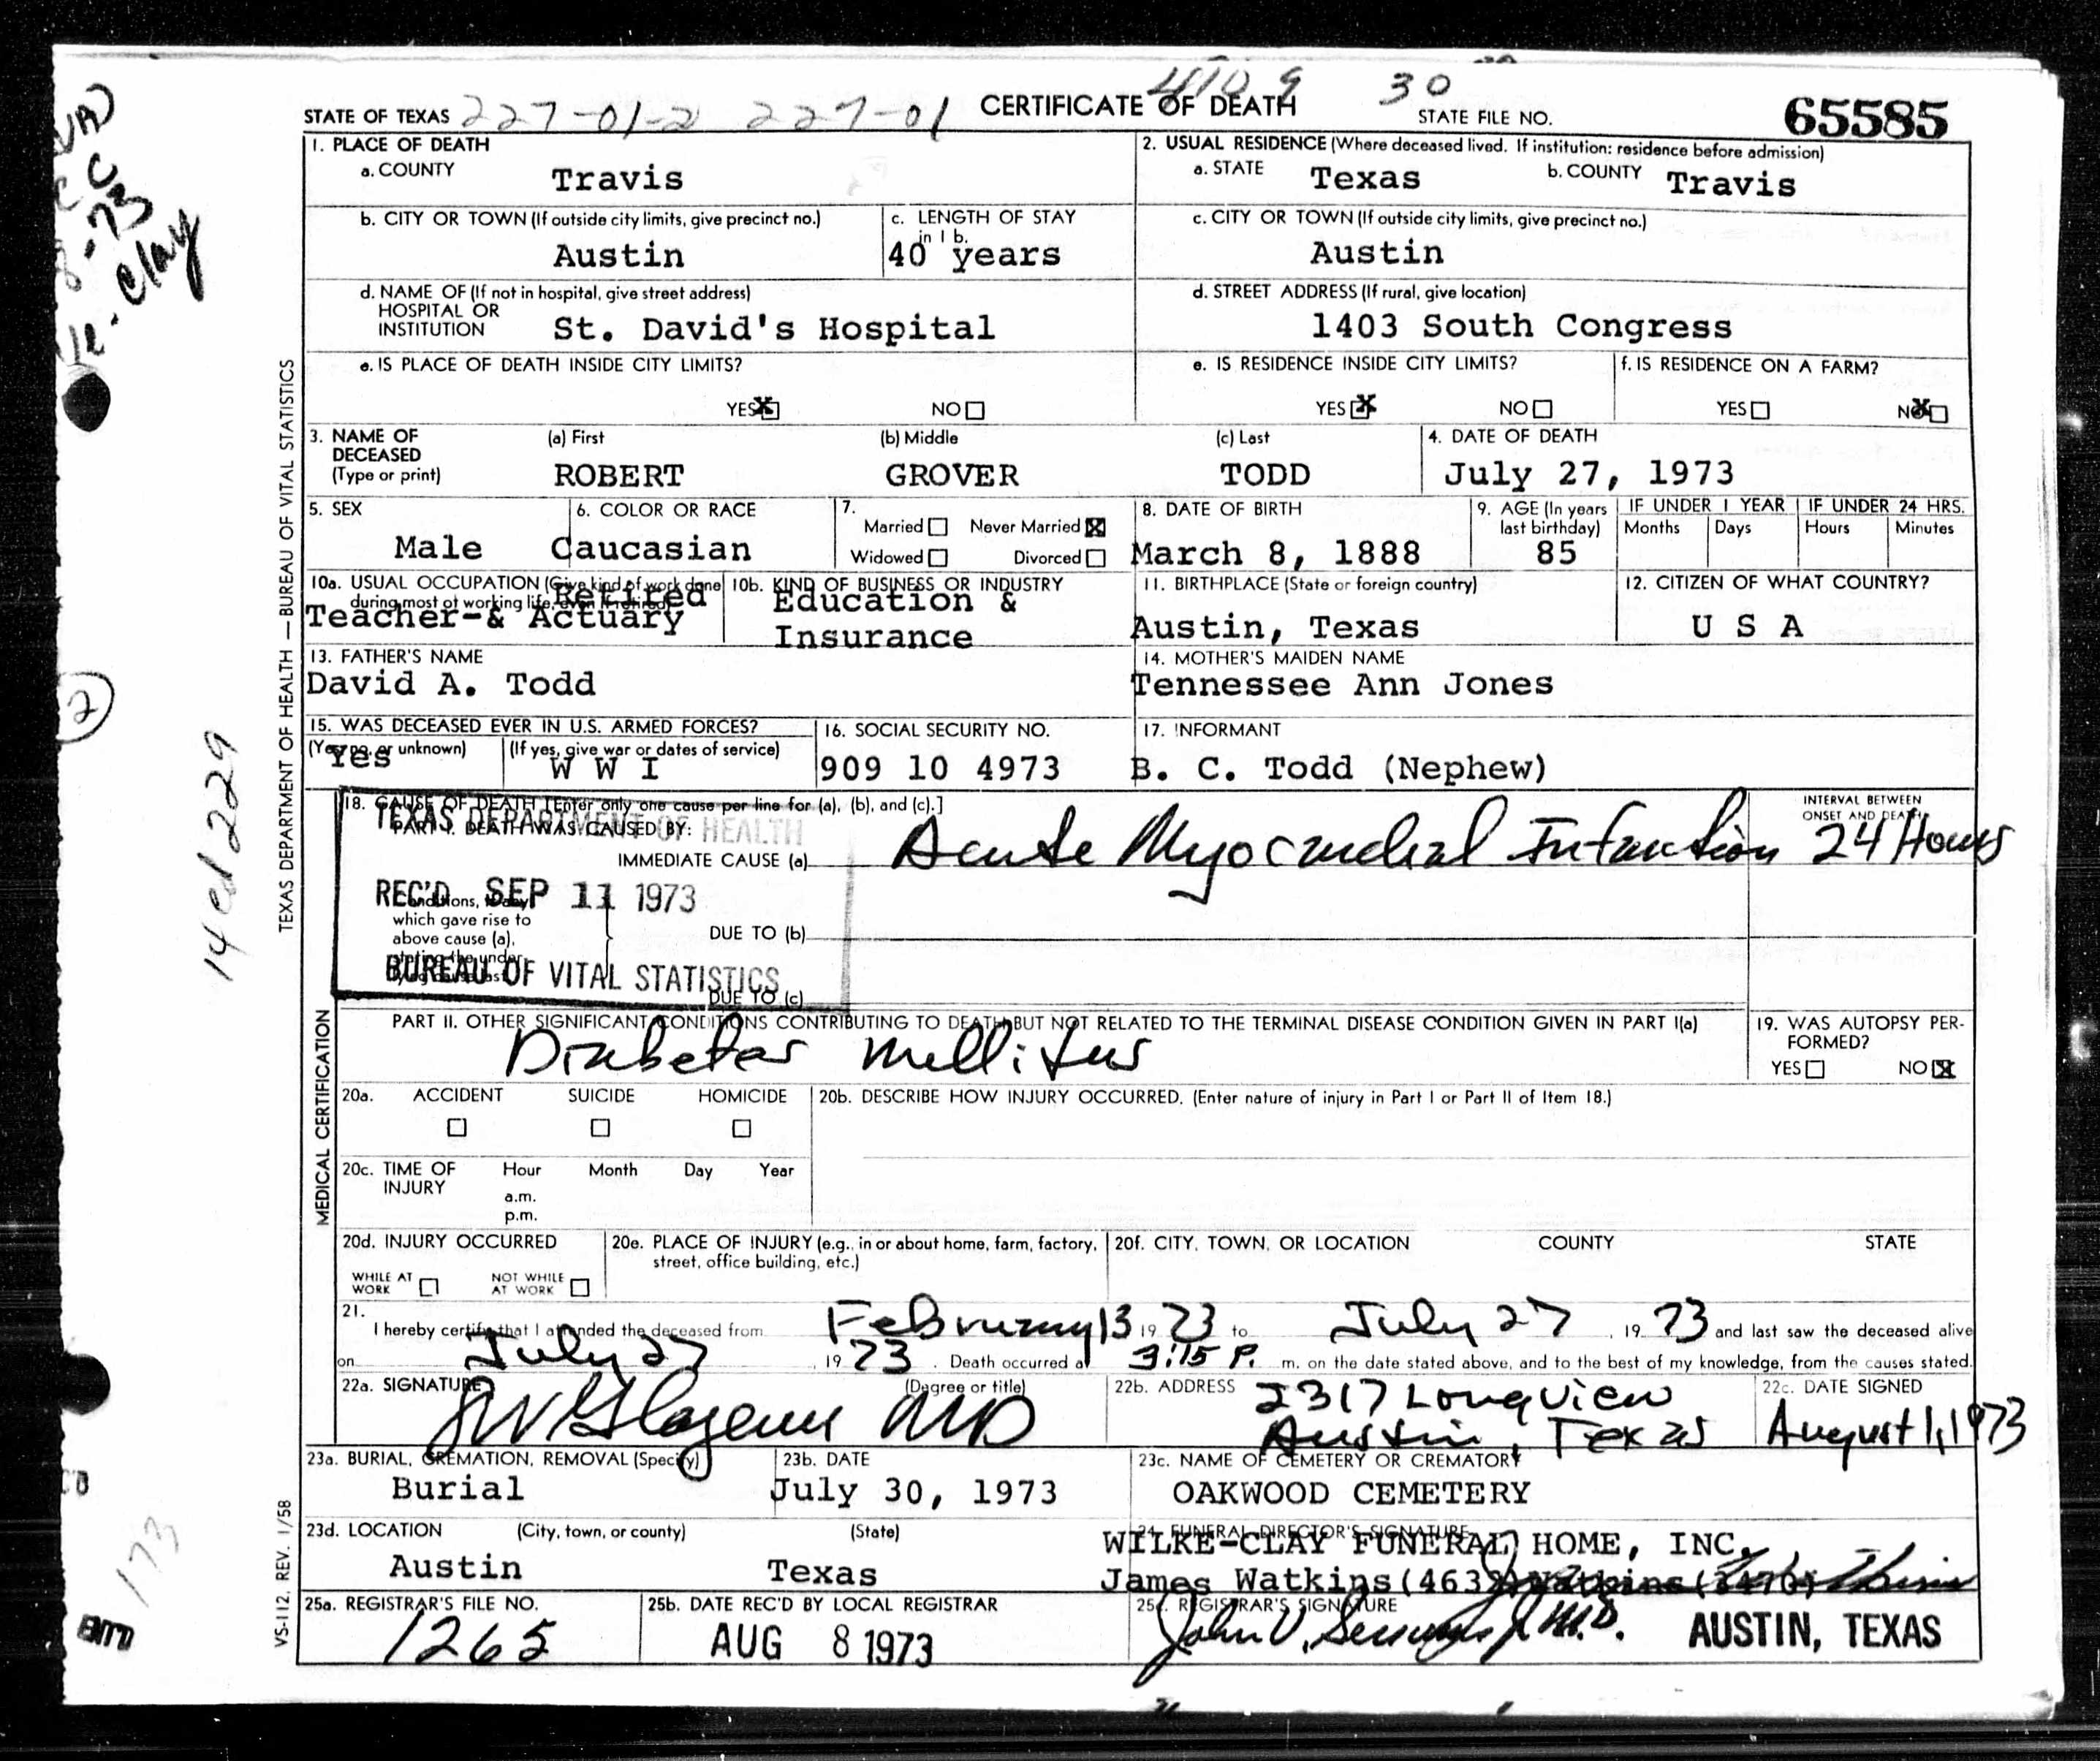 4109 30
STATE OF TEXAS 227-01-2 227-01 CERTIFICATE OF DEATH STATE FILE NO. 65585
1. PLACE OF DEATH
a. COUNTY Travis
2. USUAL RESIDENCE (Where deceased lived. If institution: residence before admission)
a. STATE Texas b. COUNTY Travis
b. CITY OR TOWN (If outside city limits, give precinct no.)
Austin
c. LENGTH OF STAY
in 1 b.
40 years
c. CITY OR TOWN (If outside city limits, give precinct no.)
Austin
d. NAME OF (If not in hospital, give street address)
HOSPITAL OR
INSTITUTION St. David's Hospital
d. STREET ADDRESS (If rural, give location)
1403 South Congress
e. IS PLACE OF DEATH INSIDE CITY LIMITS?
YES X NO
e. IS RESIDENCE INSIDE CITY LIMITS?
YES X NO
f. IS RESIDENCE ON A FARM?
YES NO X
3. NAME OF
DECEASED
(Type or print)
(a) First (b) Middle (c) Last
ROBERT GROVER TODD
4. DATE OF DEATH
July 27, 1973
5. SEX
Male
6. COLOR OR RACE
Caucasian
7.
Married Never Married X
Widowed Divorced
8. DATE OF BIRTH
March 8, 1888
9. AGE (In years
last birthday)
85
IF UNDER 1 YEAR IF UNDER 24 HRS.
Months Days Hours Minutes
10a. USUAL OCCUPATION (Give kind of work done
during most of working life, even if retired)
Retired
Teacher-& Actuary
10b. KIND OF BUSINESS OR INDUSTRY
Education &
Insurance
11. BIRTHPLACE (State or foreign country)
Austin, Texas
12. CITIZEN OF WHAT COUNTRY?
U S A
13. FATHER'S NAME
David A. Todd
14. MOTHER'S MAIDEN NAME
Tennessee Ann Jones
15. WAS DECEASED EVER IN U.S. ARMED FORCES?
(Yes, no, or unknown) (If yes, give war or dates of service)
Yes W W I
16. SOCIAL SECURITY NO.
909 10 4973
17. INFORMANT
B. C. Todd (Nephew)
18. CAUSE OF DEATH [Enter only one cause per line for (a), (b), and (c).]
PART I. DEATH WAS CAUSED BY:
IMMEDIATE CAUSE (a) Acute Myocardial Infarction
INTERVAL BETWEEN
ONSET AND DEATH
24 Hours
TEXAS DEPARTMENT OF HEALTH
REC'D SEP 11 1973
BUREAU OF VITAL STATISTICS
Conditions, if any,
which gave rise to
above cause (a),
stating the under-
lying cause last
DUE TO (b)
DUE TO (c)
PART II. OTHER SIGNIFICANT CONDITIONS CONTRIBUTING TO DEATH BUT NOT RELATED TO THE TERMINAL DISEASE CONDITION GIVEN IN PART I(a)
Diabetes Mellitus
19. WAS AUTOPSY PER-
FORMED?
YES NO X
20a. ACCIDENT SUICIDE HOMICIDE
20b. DESCRIBE HOW INJURY OCCURRED. (Enter nature of injury in Part I or Part II of Item 18.)
20c. TIME OF
INJURY
Hour Month Day Year
a.m.
p.m.
20d. INJURY OCCURRED
WHILE AT
WORK
NOT WHILE
AT WORK
20e. PLACE OF INJURY (e.g., in or about home, farm, factory,
street, office building, etc.)
20f. CITY, TOWN, OR LOCATION COUNTY STATE
21.
I hereby certify that I attended the deceased from February 13 19 73 to July 27, 19 73 and last saw the deceased alive
on July 27, 19 73. Death occurred at 3:15 P. m. on the date stated above, and to the best of my knowledge, from the causes stated.
22a. SIGNATURE (Degree or title)
MD
22b. ADDRESS 2317 Longview
Austin, Texas
22c. DATE SIGNED
August 1, 1973
23a. BURIAL, CREMATION, REMOVAL (Specify)
Burial
23b. DATE
July 30, 1973
23c. NAME OF CEMETERY OR CREMATORY
OAKWOOD CEMETERY
23d. LOCATION (City, town, or county) (State)
Austin Texas
24. FUNERAL DIRECTOR'S SIGNATURE
WILKE-CLAY FUNERAL HOME, INC.
James Watkins(4632)
25a. REGISTRAR'S FILE NO.
1265
25b. DATE REC'D BY LOCAL REGISTRAR
AUG 8 1973
25c. REGISTRAR'S SIGNATURE
AUSTIN, TEXAS
TEXAS DEPARTMENT OF HEALTH — BUREAU OF VITAL STATISTICS
MEDICAL CERTIFICATION
VS-112. REV. 1/58
Clay
2
173